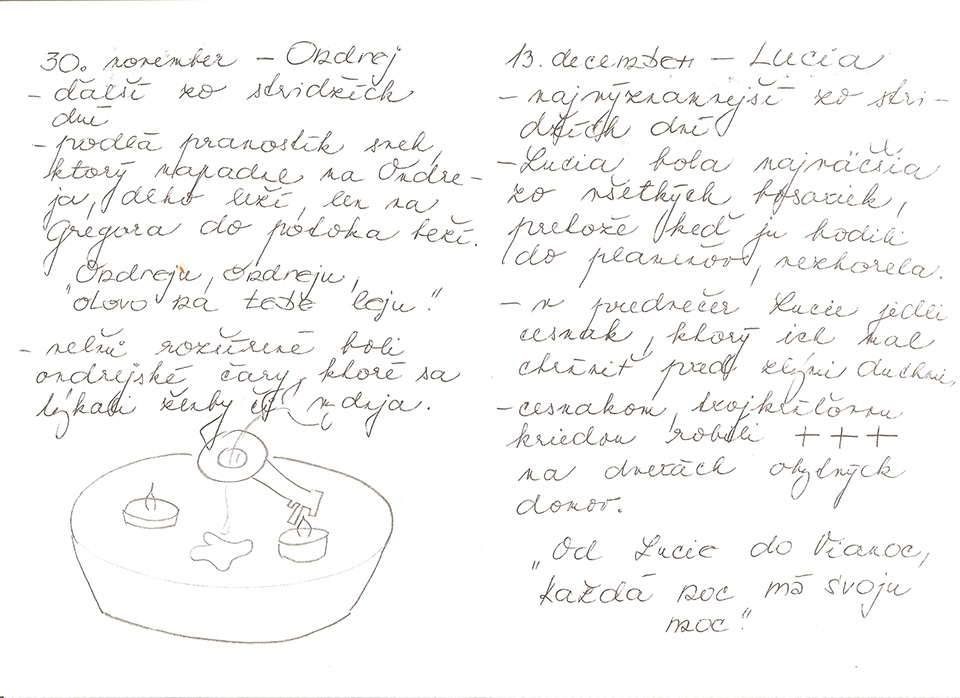 30. november – Ondrej
– ďalší zo stridžích
dní
– podľa pranostík sneh,
ktorý napadne na Ondre-
ja, dlho leží, len na
Gregora do potoka beží.
"Ondreju, Ondreju,
olovo na tebe leju."
– veľmi rozšírené boli
ondrejské čáry, ktoré sa
týkali ženby či vydaja.
13. december – Lucia
– najvýznamnejší zo stri-
džích dní
– Lucia bola najväčšia
zo všetkých bosoriek,
pretože keď ju hodili
do plameňov, nezhorela.
– v predvečer Lucie jedli
cesnak, ktorý ich mal
chrániť pred zlými duchmi,
– cesnakom, trojkráľovou
kriedou robili +++
na dverách obydných
domov.
„Od Lucie do Vianoc,
každá noc má svoju
moc."